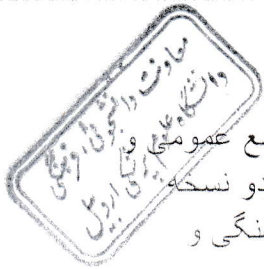 معاونت دانشجویی و فرهنگی
دانشگاه علوم پزشکی اردبیل
ع عمومی و
دو نسخه
نگی و